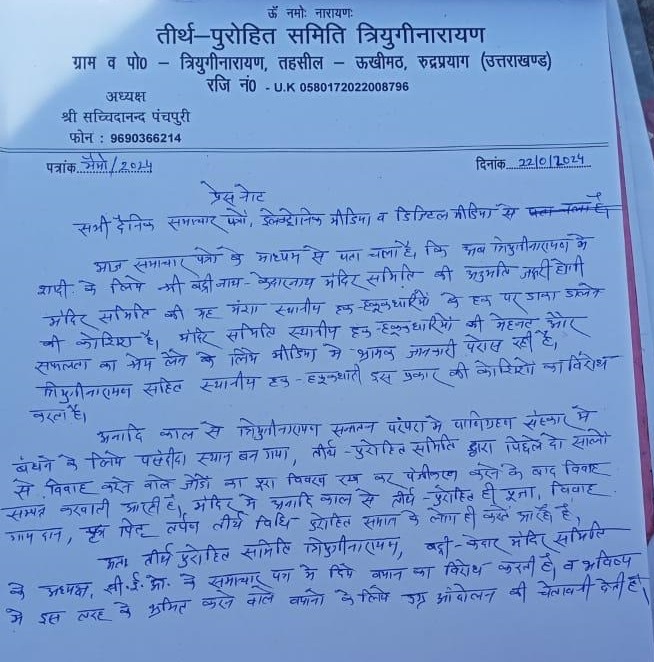 ॐ नमोः नारायणः
तीर्थ–पुरोहित समिति त्रियुगीनारायण
ग्राम व पो0 – त्रियुगीनारायण, तहसील – ऊखीमठ, रुद्रप्रयाग (उत्तराखण्ड)
रजि नं0 - U.K 0580172022008796
अध्यक्ष
श्री सच्चिदानन्द पंचपुरी
फोन : 9690366214
पत्रांक मैमो/2024
दिनांक 22/01/2024
प्रेस नोट
सभी दैनिक समाचार पत्रों, इलेक्ट्रोनिक मीडिया व डिजिटल मीडिया से पता चला है,
आज समाचार पत्रों के माध्यम से पता चला है, कि अब त्रियुगीनारायण में
शादी के लिये श्री बद्रीनाथ-केदारनाथ मंदिर समिति की अनुमति जरूरी होगी
मंदिर समिति की यह मंशा स्थानीय हक-हकूकधारियों के हक पर डाका डालने
की कोशिश है, मंदिर समिति स्थानीय हक-हकूकधारियों की मेहनत और
सफलता का श्रेय लेने के लिये मीडिया में भ्रामक जानकारी परोस रही है,
त्रियुगीनारायण सहित स्थानीय हक-हकूकधारी इस प्रकार की कोशिशों का विरोध
करता है।
अनादि काल से त्रियुगीनारायण सनातन परंपरा में पाणिग्रहण संस्कार में
बंधने के लिये पसंदीदा स्थान बन गया, तीर्थ-पुरोहित समिति द्वारा पिछले दो सालों
से विवाह करने वाले जोड़ों का पूरा विवरण रख कर पंजीकरण करने के बाद विवाह
सम्पन्न करवाती आ रही है, मंदिर में अनादि काल से तीर्थ-पुरोहित ही पूजा, विवाह
दान, पितृ तर्पण तीर्थ विधि पुरोहित समाज के लोग ही करते आ रहे हैं,
अतः तीर्थ पुरोहित समिति त्रियुगीनारायण, बद्री-केदार मंदिर समिति
के अध्यक्ष, सी.ई.ओ. के समाचार पत्र में दिये बयान का विरोध करती है, व भविष्य
में इस तरह के भ्रमित करने वाले बयानों के लिये उग्र आंदोलन की चेतावनी देती है।